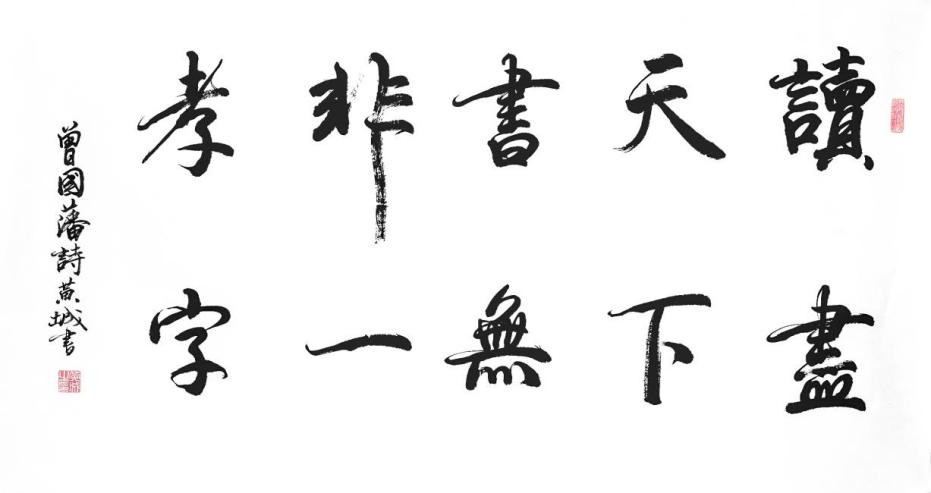 讀盡
天下
書無
非一
孝字
曾國藩詩黄城書